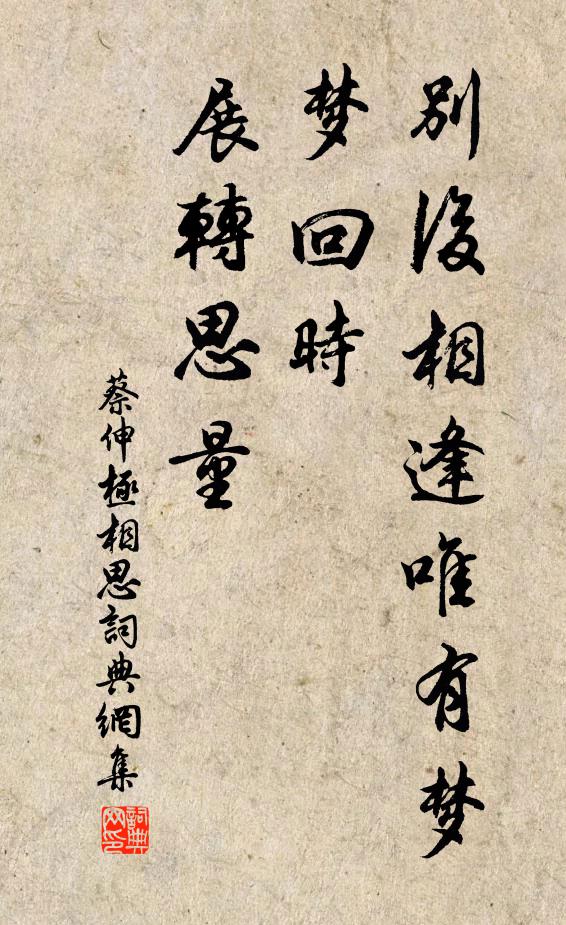 别後相逢唯有梦
梦回時
展轉思量
蔡伸極相思詞典網集
詞典网印